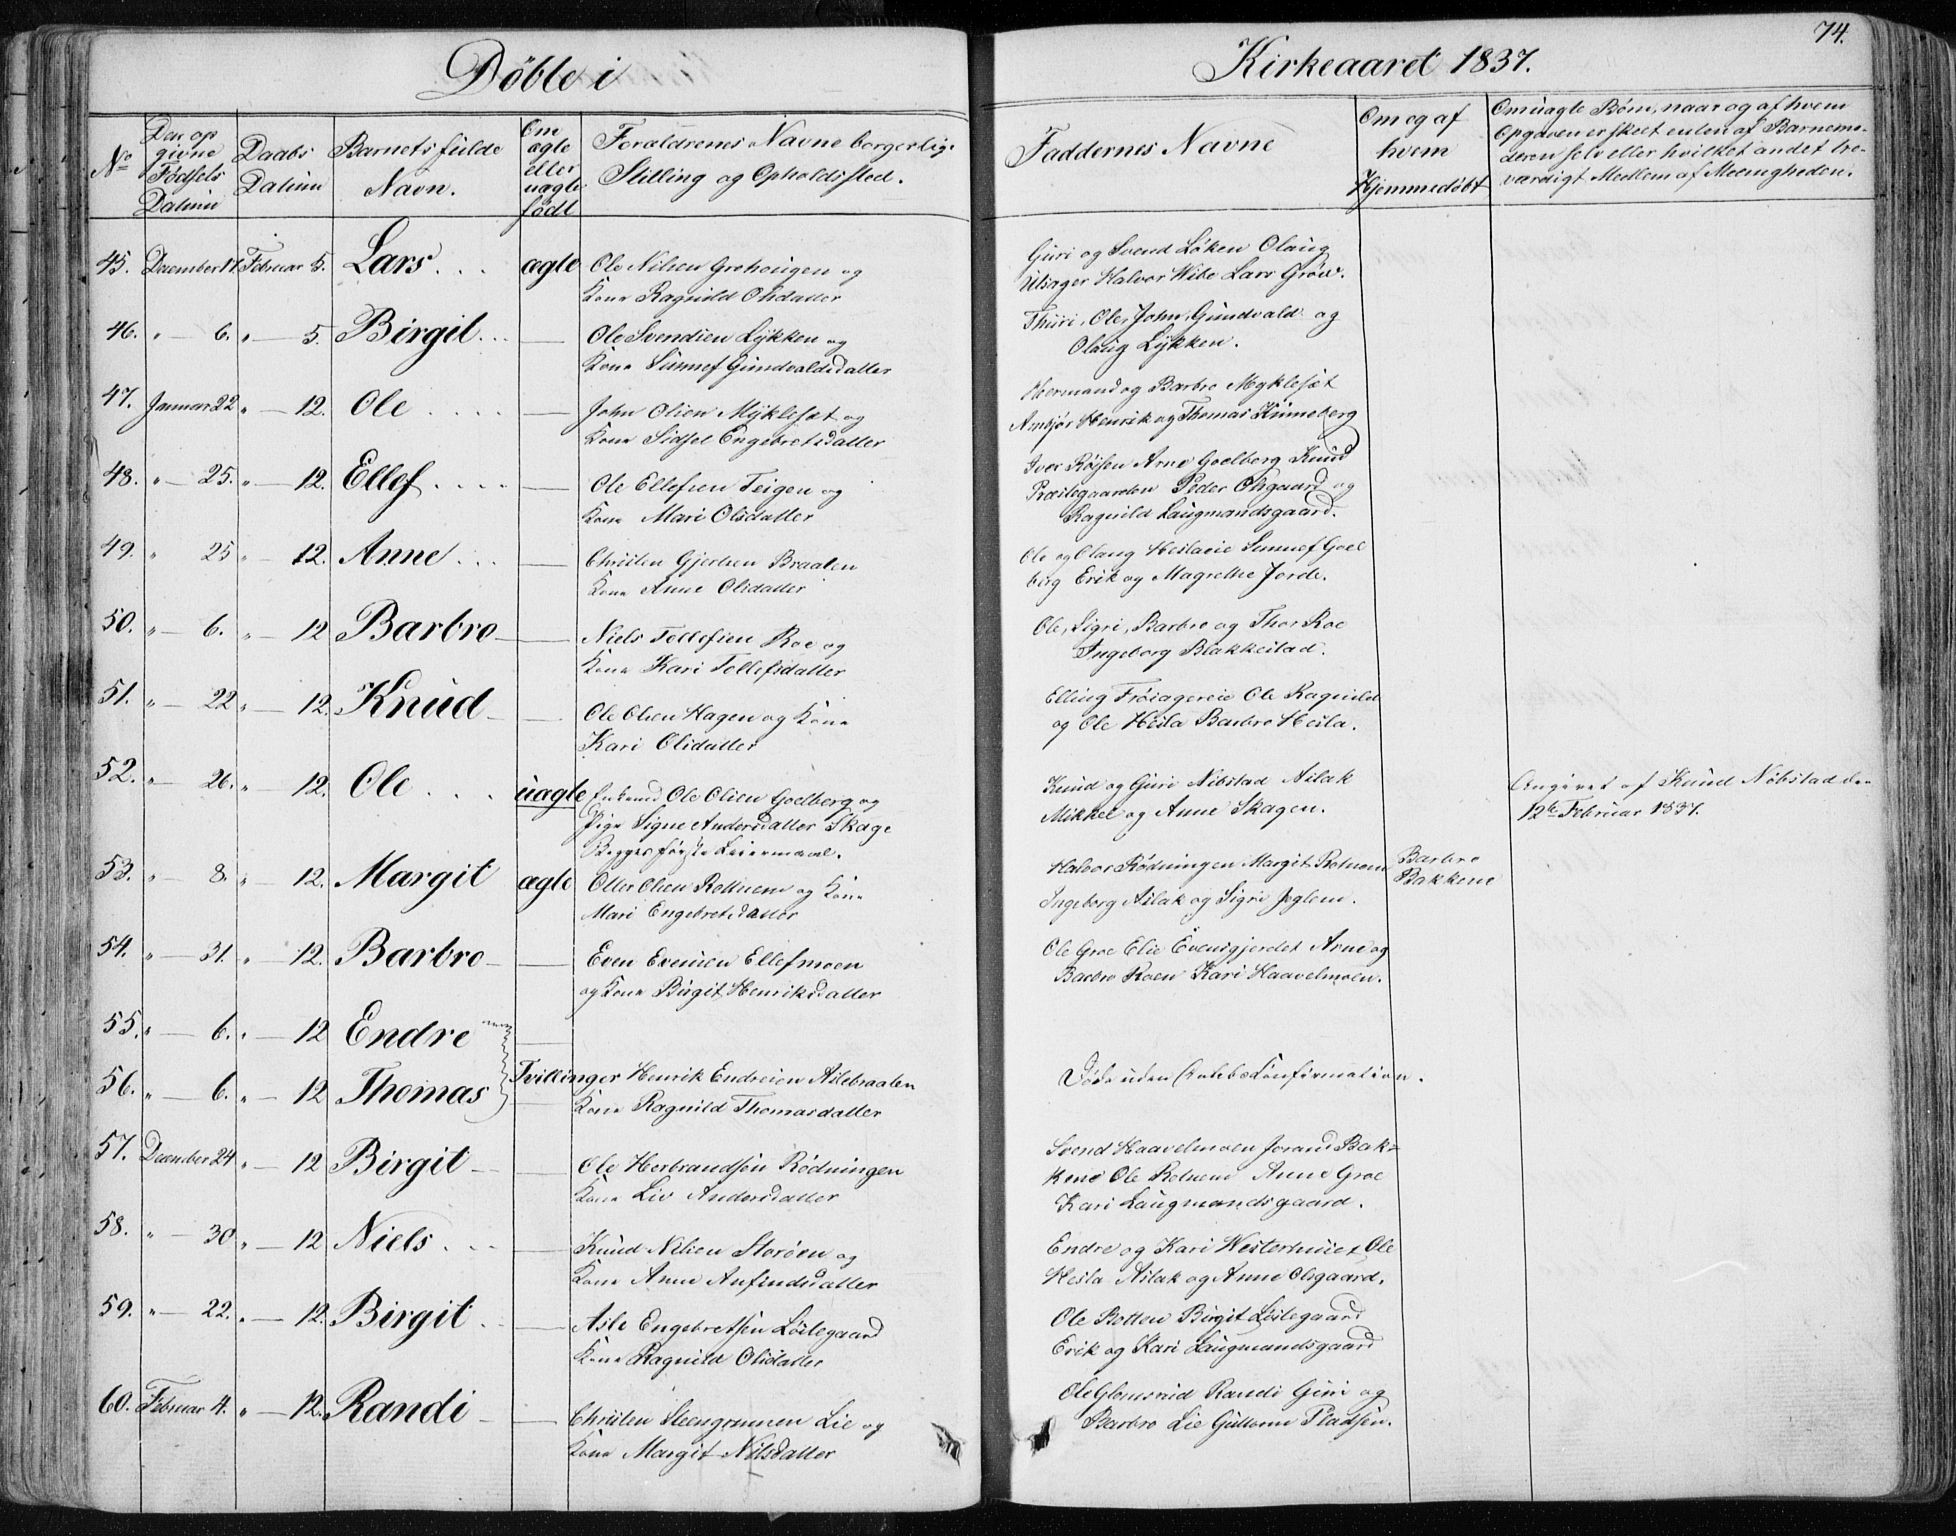 74.
Døbte i Kirkeaaret 1837.
No
Den op
givne
Fødsels
Datum
Daabs
Datum
Barnets fulde
Navn.
Om
ægte
eller
uægte
født
Forældrenes Navne borgerlige
Stilling og Opholdssted.
Faddernes Navne
Om og af
hvem
Hjemmedøbt
Om uægte Børn, naar og af hvem
Opgaven er skeet enten af Barnemo-
deren selv eller hvilket andet tro-
værdigt Medlem af Meenigheden.
45. December 17 Februar 5. Lars ægte Ole Nilsen Grøhougen og
Kone Ragnild Olsdatter
Guri og Svend Løken Olaug
Ulsager Halvor Wibe Lars Grøw.
46. " 6. " 5. Birgit Ole Svendsen Lykken og
Kone Sunnef Gundvaldsdatter
Thuri, Ole, John, Gundvald og
Olaug Lykken.
47. Januar 22 " 12. Ole John Olsen Myklesæt og
Kone Sidsel Engebretsdatter
Hermand og Barbro Myklesæt
Ambjør Henrik og Thomas Kinneberg
48. " 25. " 12. Ellef Ole Ellefsen Teigen og
Kone Mari Olsdatter
Iver Røisen Arne Goelberg Knud
Præstegaarden Peder Olsgaard og
Ragnild Laugmandsgaard.
49. " 25 " 12. Anne Christen Gjertsen Braaten
Kone Anne Olsdatter
Ole og Olaug Heslaeie Sunnef Goel
berg Erik og Magrethe Jorde.
50. " 6. " 12 Barbro Niels Tollefsen Roe og
Kone Kari Tollefsdatter
Ole, Sigri, Barbro og Thor Roe
Ingeborg Blakkestad.
51. " 22 " 12. Knud Ole Olsen Hagen og Kone
Kari Olsdatter
Elling Frøiagereie Ole Ragnild
og Ole Hesla Barbro Hesla.
52. " 26. " 12. Ole uægte Enkemd Ole Olsen Goelberg og
Pige Signe Andersdatter Skage
Begges første Leiermaal.
Knud og Guri Nibstad Aslak
Mikkel og Anne Skagen.
Angivet af Knud Nibstad den
12te Februar 1837.
53. " 8. " 12. Margit ægte Otter Olsen Rotnem og Kone
Mari Engebretsdatter
Halvor Rødningen Margit Rotnem
Ingeborg Aslak og Sigri Jeglem.
Barbro
Bakkene
54. " 31. " 12. Barbro Even Evensen Ellefmoen
og Kone Birgit Henriksdatter
Ole Groe Elie Evensgjerdet Arne og
Barbro Roen Kari Haavelmoen.
55. " 6. " 12 Endre
56. " 6. " 12 Thomas Tvillinger Henrik Endresen Aslebraaten
Kone Ragnild Thomasdatter
Døde uden Daabs Confirmation.
57. December 24 " 12 Birgit Ole Herbrandsen Rødningen
Kone Liv Andersdatter
Svend Haavelmoen Jorand Bak-
kene Ole Rotnem Anne Groe
Kari Laugmandsgaard.
58. " 30 " 12 Niels Knud Nilsen Storøen og
Kone Anne Anfindsdatter
Endre og Kari Westerhuset Ole
Hesla Aslak og Anne Olsgaard.
59. " 22. " 12. Birgit Asle Engebretsen Løstegaard
Kone Ragnild Olsdatter
Ole Botten Birgit Løstegaard
Erik og Kari Laugmandsgaard
60. Februar 4. " 12. Randi Christen Steengrimsen Lie og
Kone Margit Nilsdatter
Ole Glomsrud Randi Guri og
Barbro Lie Guttorm Pladsen.